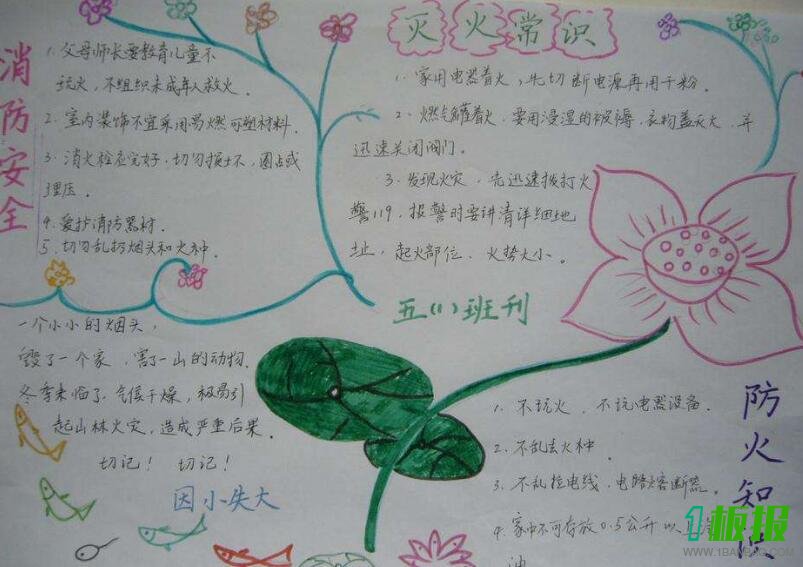 消防安全
1. 父母师长要教育儿童不
玩火，不组织未成年人救火．
2. 室内装饰不宜采用易燃可塑材料．
3. 消火栓应完好．切勿损坏、圈占或
埋压．
4. 爱护消防器材．
5. 切勿乱扔烟头和火种．
灭火常识
1. 家用电器着火，先切断电源再用干粉．
2. 燃气罐着火，要用浸湿的被褥、衣物盖灭火，并
迅速关闭阀门。
3. 发现火灾，先迅速拨打火
警119．报警时要讲清详细地
址，起火部位、火势大小。
五(1)班刊
一个小小的烟头，
毁了一个家，害了一山的动物．
冬季来临了．气侯干燥，极易引
起山林火灾，造成严重后果．
切记！ 切记！
因小失大
防火知识
1. 不玩火，不玩电器设备．
2. 不乱丢火种．
3. 不乱拉电线，电路熔断器。
4. 家中不可存放0.5公升以上
油
1板报
WWW.1BANBAO.COM